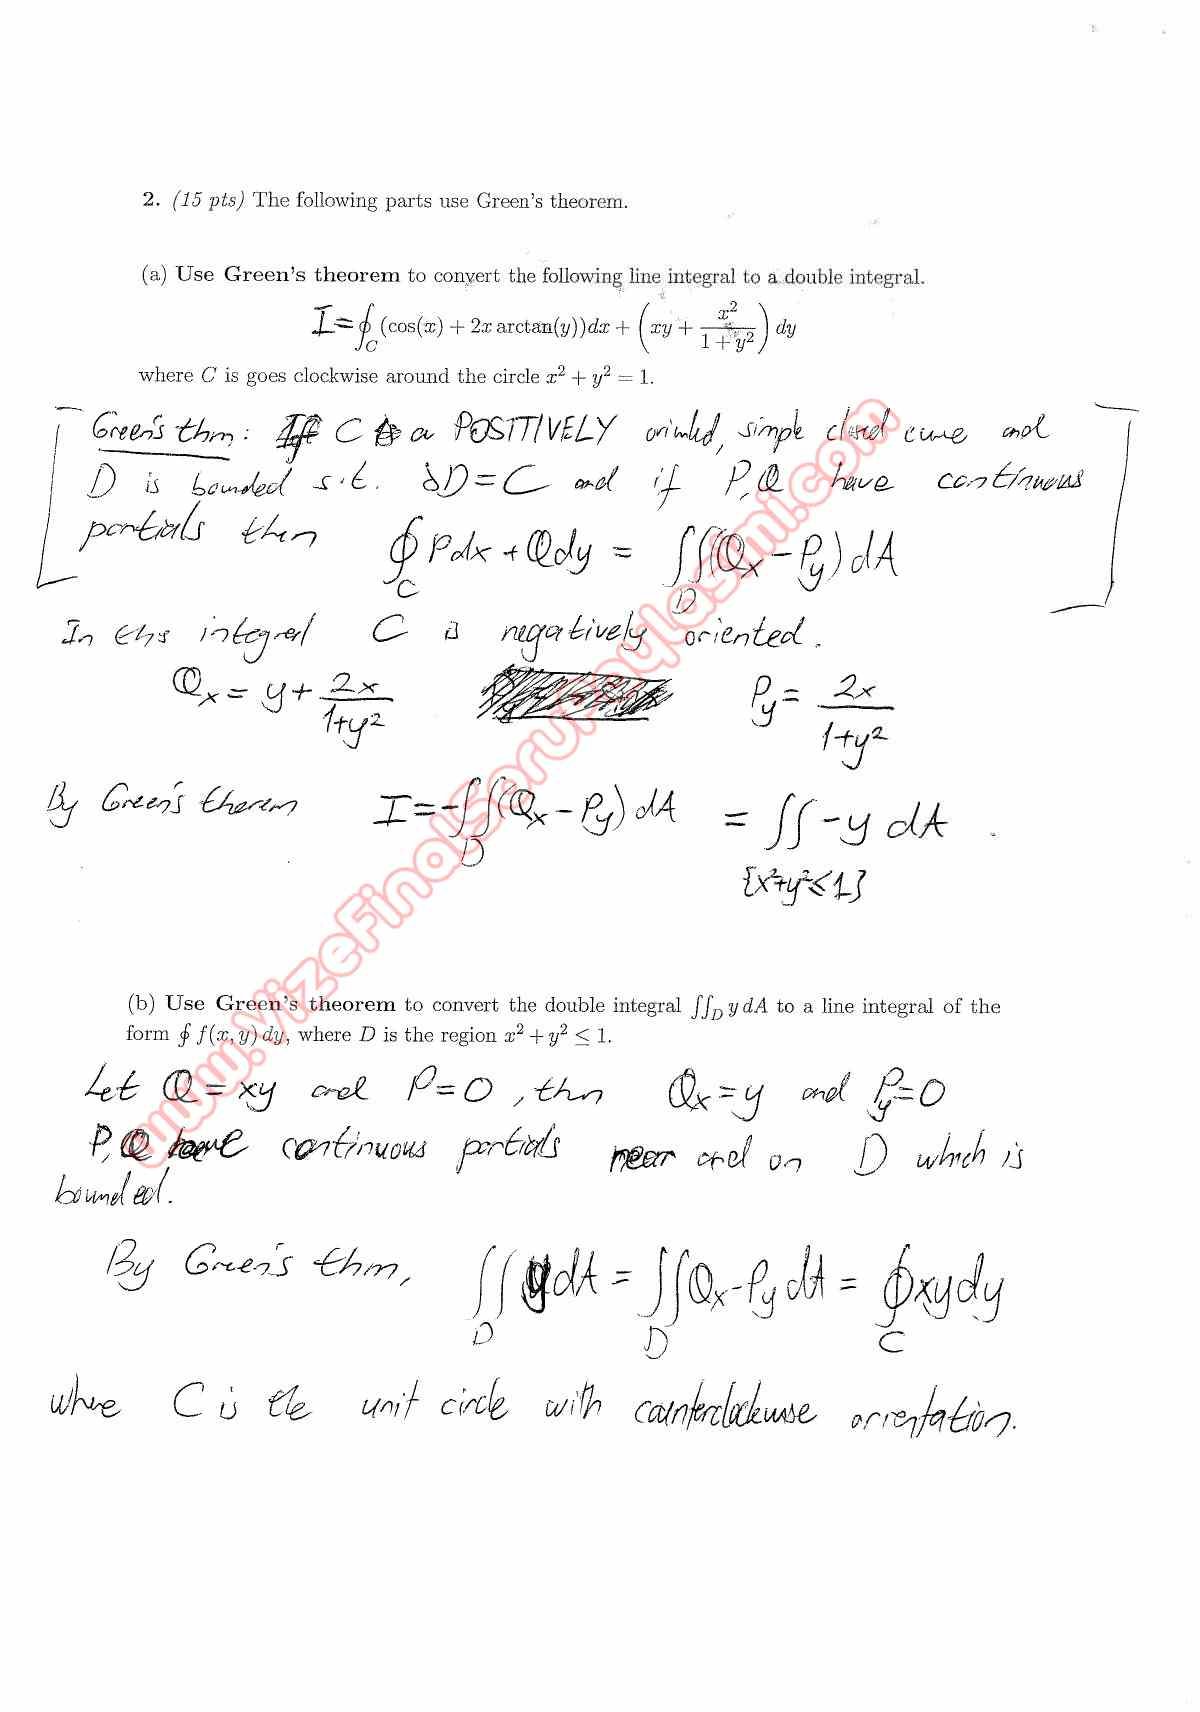 2. (15 pts) The following parts use Green's theorem.
(a) Use Green's theorem to convert the following line integral to a double integral.
I = ∮_C (cos(x) + 2x arctan(y))dx + (xy + x²/(1 + y²)) dy
where C is goes clockwise around the circle x² + y² = 1.
Green's thm: If C is a POSITIVELY oriented, simple closed curve and
D is bounded s.t. ∂D = C and if P,Q have continuous
partials then ∮_C Pdx + Qdy = ∬_D (Q_x - P_y) dA
In this integral C is negatively oriented.
Q_x = y + 2x/(1+y²) P_y = 2x/(1+y²)
By Green's theorem I = -∬_D (Q_x - P_y) dA = ∬_{x²+y²≤1} -y dA.
(b) Use Green's theorem to convert the double integral ∬_D y dA to a line integral of the
form ∮ f(x, y) dy, where D is the region x² + y² ≤ 1.
Let Q = xy and P = 0, then Q_x = y and P_y = 0
P, Q have continuous partials near and on D which is
bounded.
By Green's thm, ∬_D y dA = ∬_D Q_x - P_y dA = ∮_C xy dy
where C is the unit circle with counterclockwise orientation.
www.VizeFinalSoruPaylasimi.com